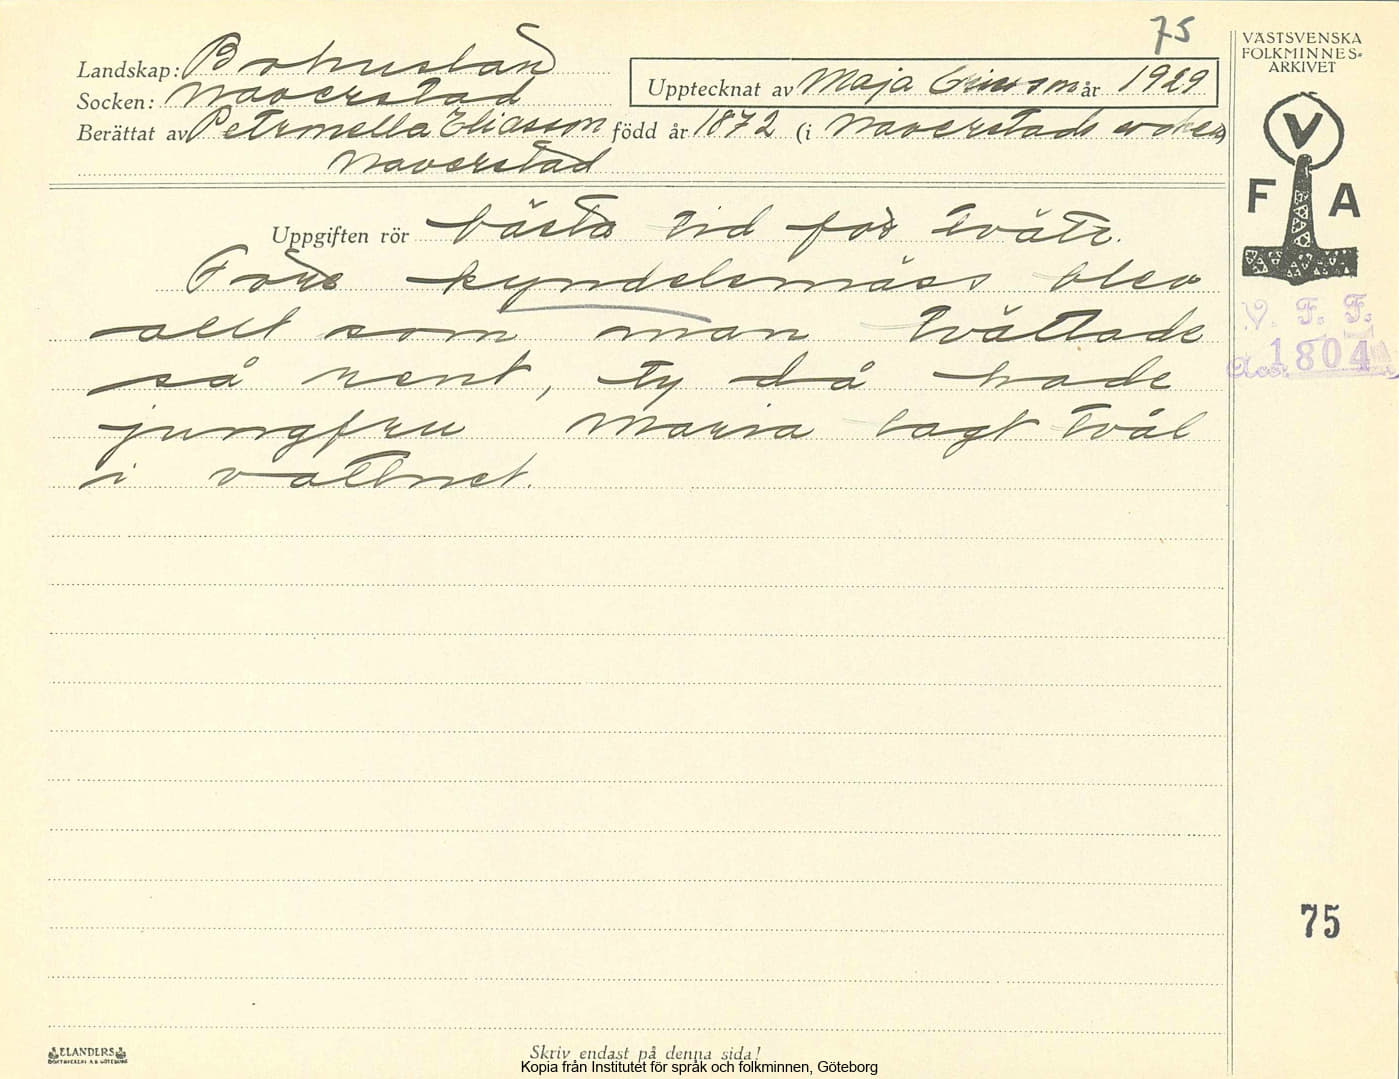 75
VÄSTSVENSKA
FOLKMINNES-
ARKIVET
Landskap: Bohuslän
Socken: Naverstad
Upptecknat av Maja Ericsson år 1929
Berättat av Petronella Eliasson född år 1872 (i Naverstads socken)
Naverstad
V
F A
Uppgiften rör bästa tid för tvätt.
Före kyndelsmäss blev
allt som man tvättade
så rent, ty då hade
jungfru Maria lagt tvål
i vattnet.
V. F. F.
Acc. 1804
75
ELANDERS
BOKTRYCKERI A.B. GÖTEBORG
Skriv endast på denna sida!
Kopia från Institutet för språk och folkminnen, Göteborg